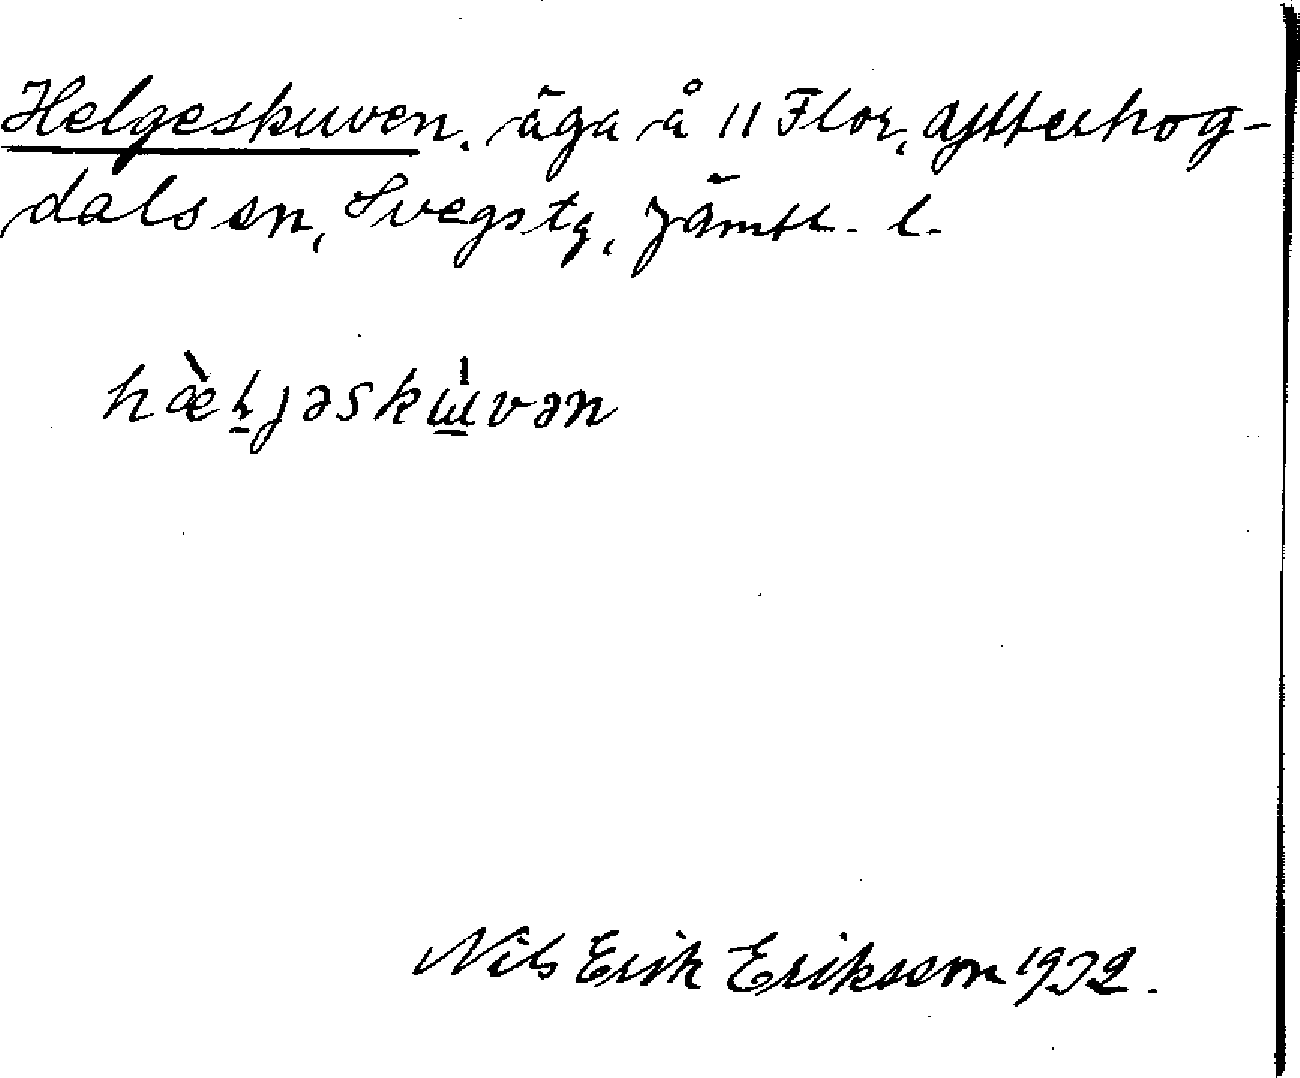 Helgeskuven, äga å 11 Flor, Ytterhog-
dals sn, Svegs tg, Jämtl. l.
hæ̀ḷjəskɯ̱́vən
Nils Erik Eriksson 1932.